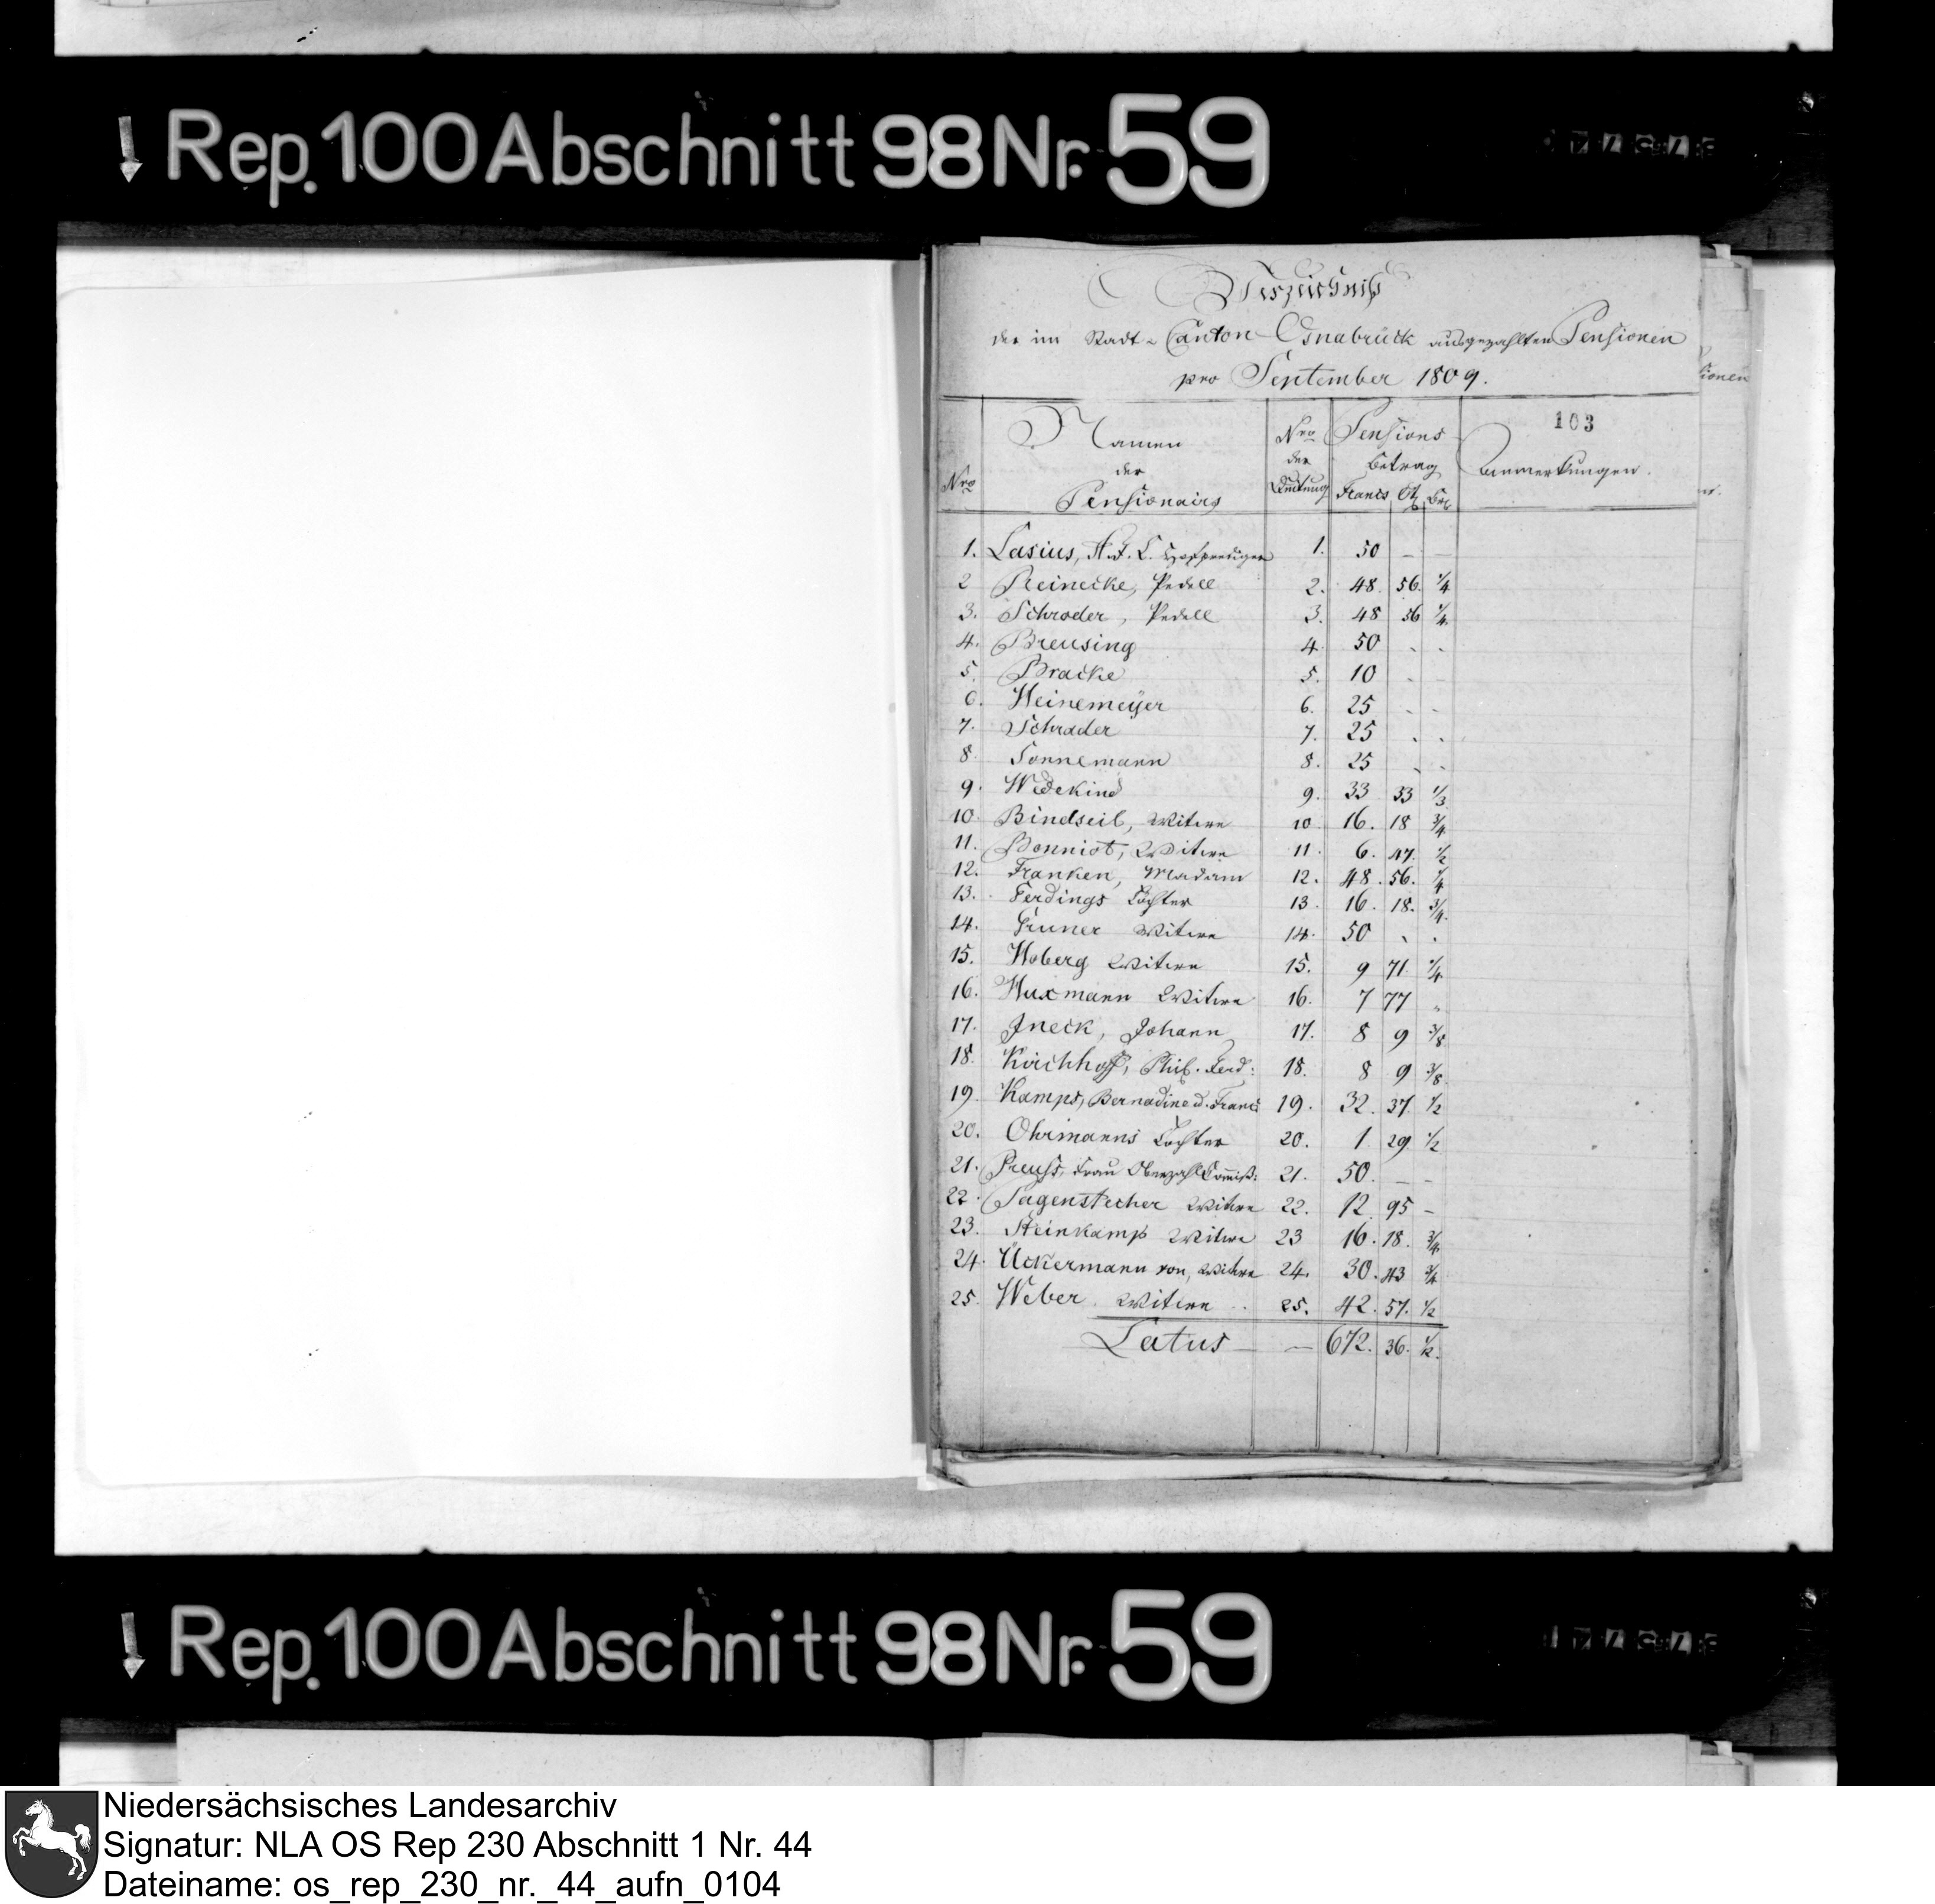 Rep. 100 Abschnitt 98 Nr. 59
Verzeichniß
der im Stadt-Canton Osnabrück ausgezahlten Pensionen
pro September 1809.
103
Nro
Namen der Pensionairs
Nro der Quitung
Pensions Betrag
Francs Ct.
Anmerkungen.
1. Lasius, Hofprediger 1. 50 – –
2 Reinecke, Pedell 2. 48. 56. 1/4
3. Schroder, Pedell 3. 48 56 1/4.
4. Breusing 4. 50 - -
5. Bracke 5. 10 - -
6. Heinemeÿer 6. 25 - -
7. Schrader 7. 25 - -
8. Sonnemann 8. 25 - -
9. Wedekind 9. 33 33 1/3
10. Bindseil, Witwe 10 16. 18 3/4
11. Bonniot, Witwe 11. 6. 47. 1/2
12. Franken, Madam 12. 48. 56. 1/4
13. Ferdings Töchter 13. 16. 18. 3/4.
14. Gruner Witwe 14. 50 - -
15. Hoberg Witwe 15. 9 71. 1/4
16. Huxmann Witwe 16. 7 77 "
17. Jneck, Johann 17. 8 9 3/8
18. Kirchhoff, Phil. Ferd: 18. 8 9 3/8.
19. Kamps, Bernadine d. Franc: 19. 32. 37. 1/2
20. Ohrmanns Töchter 20. 1. 29. 1/2
21. Preuss, Frau OberzahlCommiß: 21. 50. – –
22. Pagenstecher Witwe 22. 12. 95 –
23. Steinkamp Witwe 23 16. 18. 3/4.
24. Uckermann von, Witwe 24. 30. 43 3/4
25. Weber Witwe 25. 42. 57. 1/2
Latus – 672. 36.
Rep. 100 Abschnitt 98 Nr. 59
Niedersächsisches Landesarchiv
Signatur: NLA OS Rep 230 Abschnitt 1 Nr. 44
Dateiname: os_rep_230_nr._44_aufn_0104